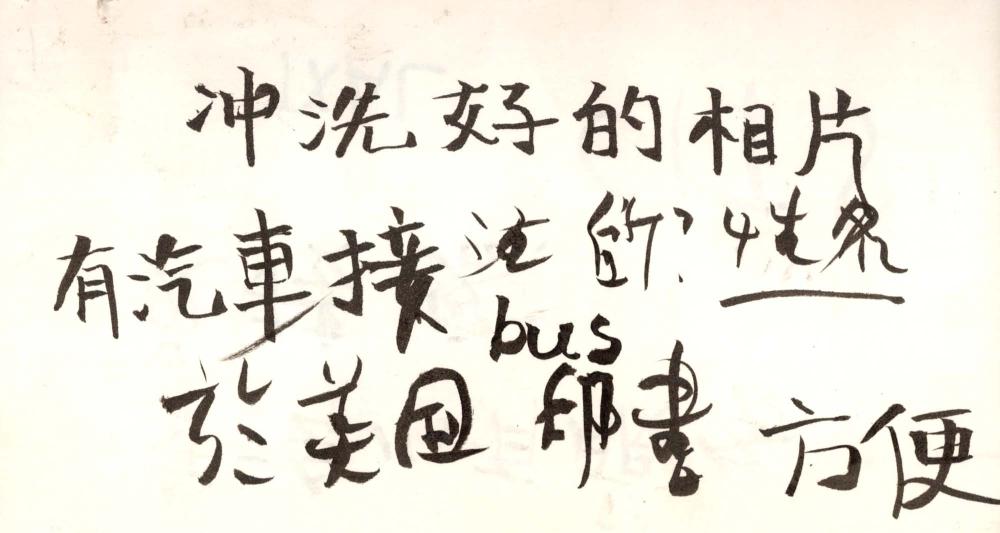 冲洗好的相片
有汽車接
bus
於美国 印書 方便